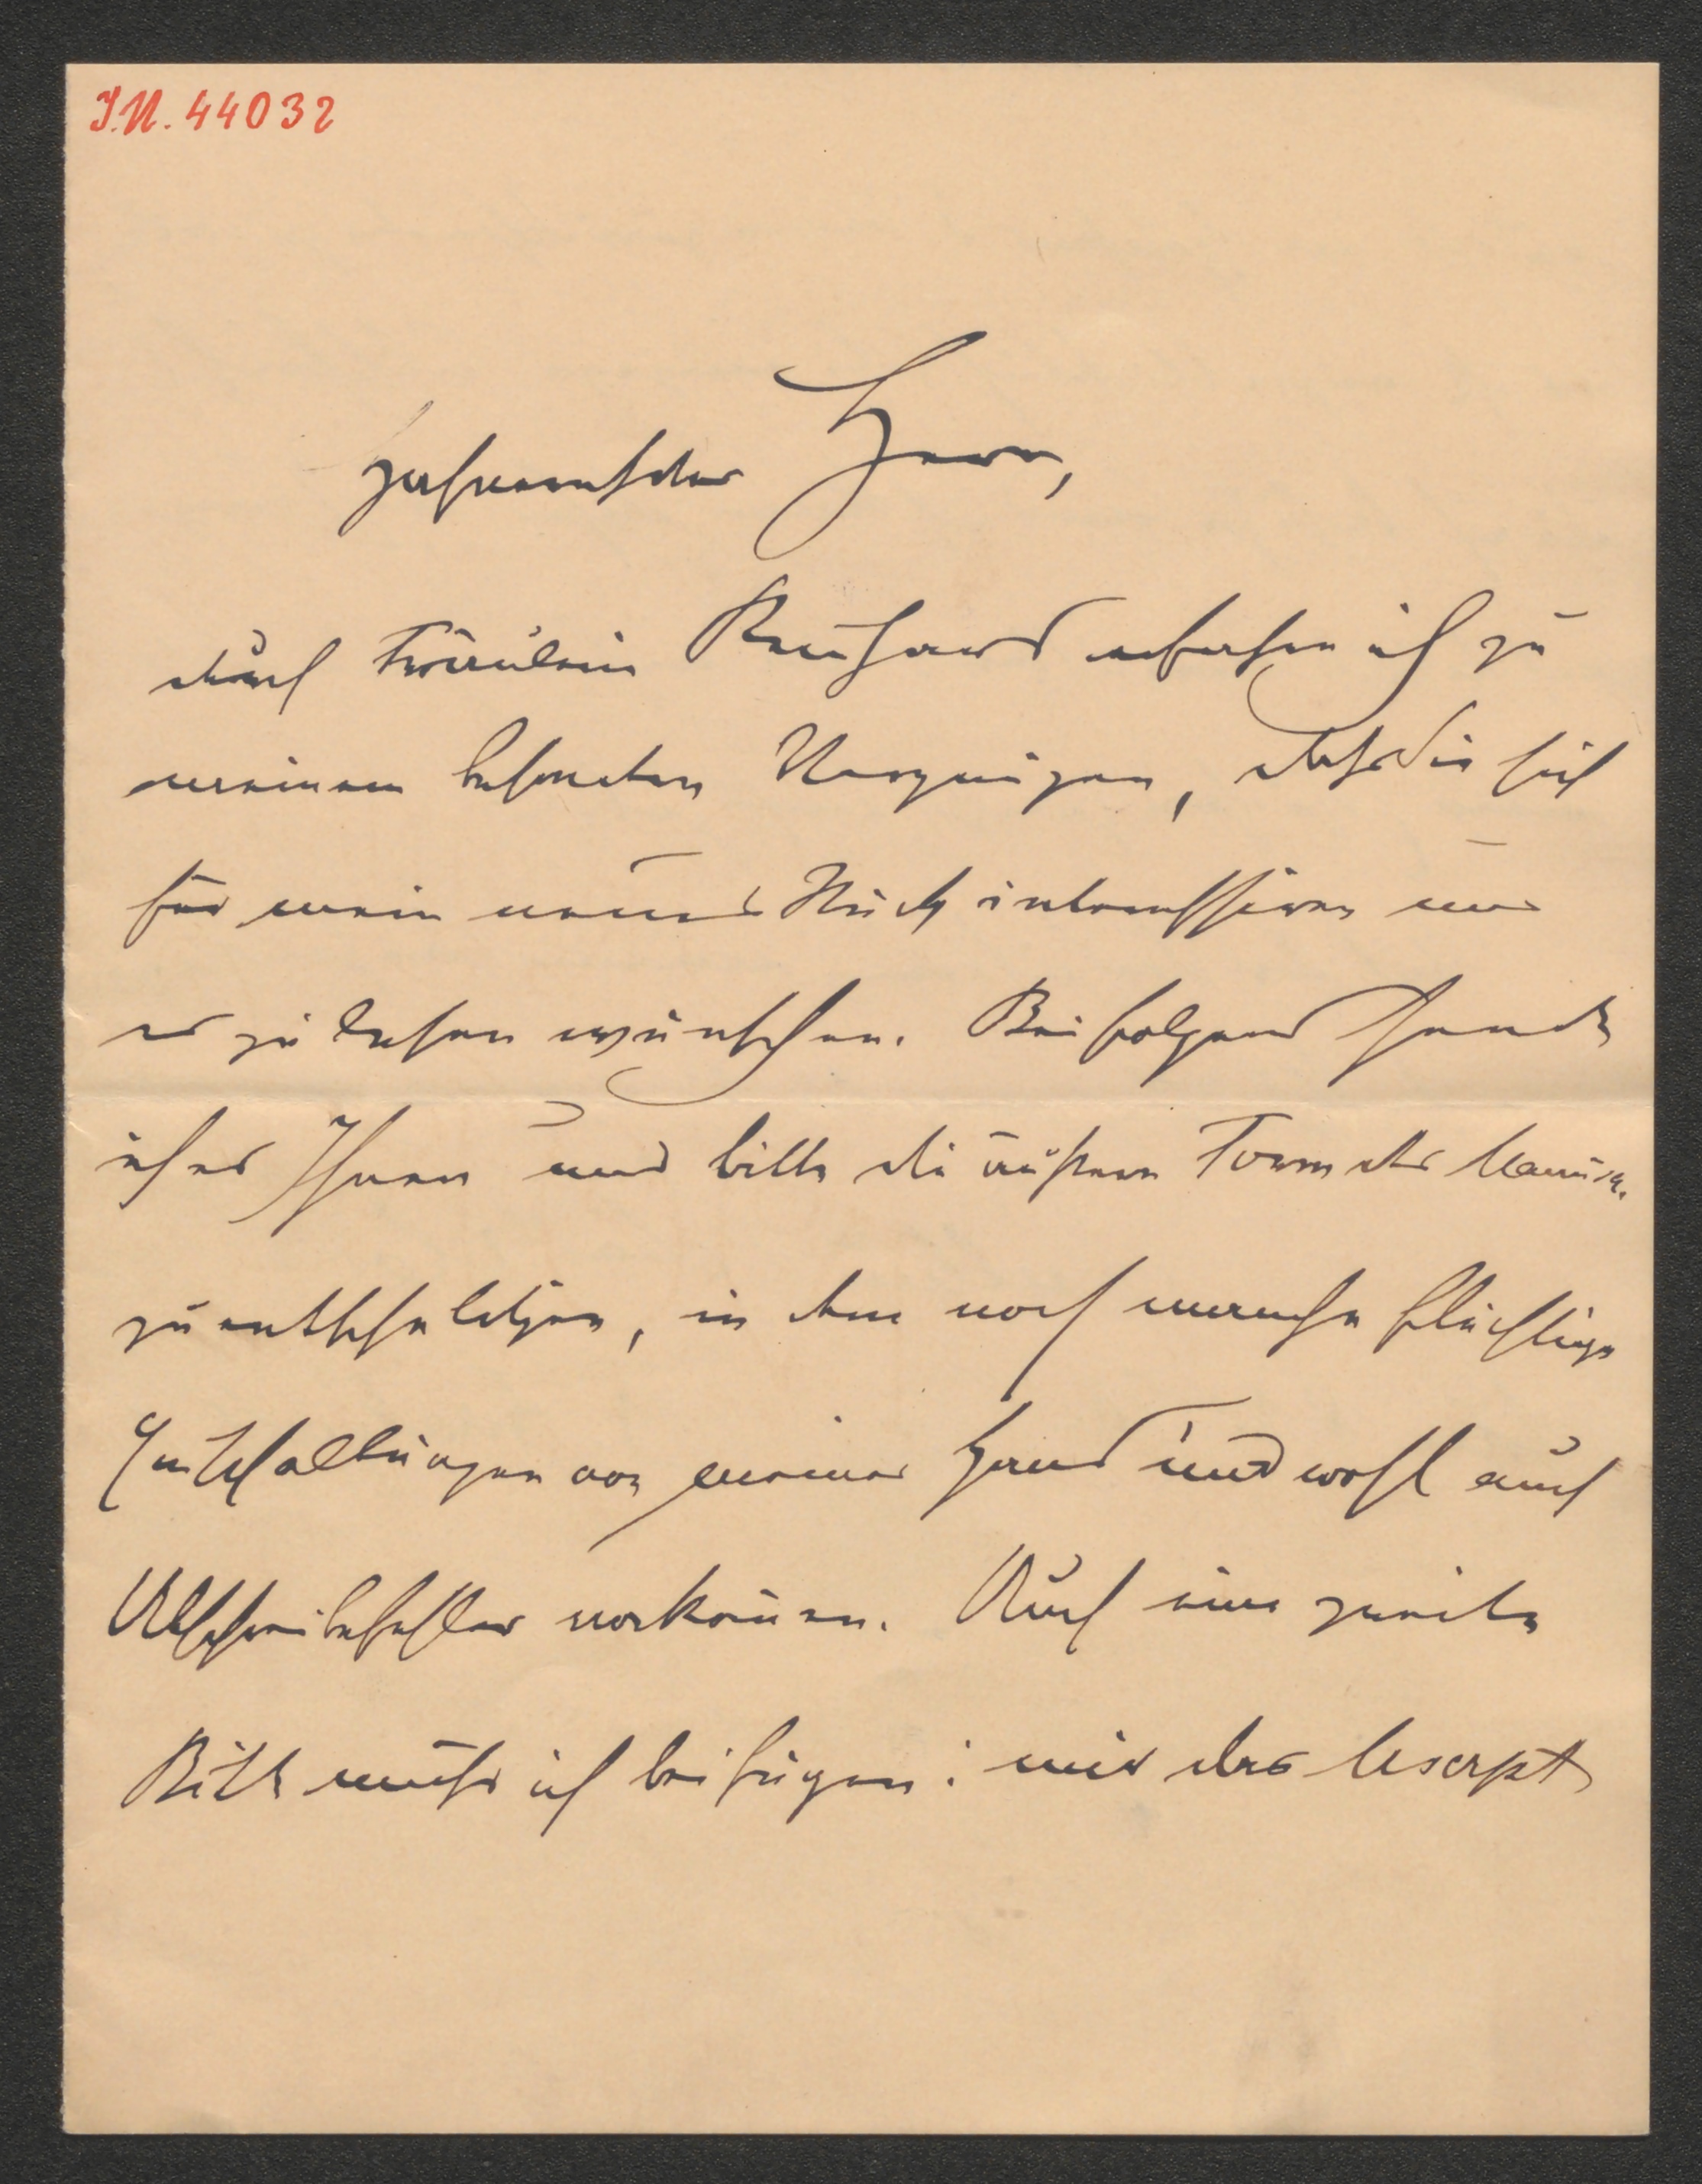 I.N. 44032
Hochverehrter Herr,
durch Fräulein Reinhard erfahre ich zu
meinem besonderen Vergnügen, daß Sie sich
für mein neues Stück interessieren und
es zu lesen wünschen. Beifolgend sende
ich es Ihnen und bitte die äußere Form des Manusc.
zu entschuldigen, in dem noch manche flüchtige
von meiner Hand und wohl auch
Abschreibefehler vorkommen. Auch eine zweite
Bitte muß ich beifügen: mir das Mscrpt